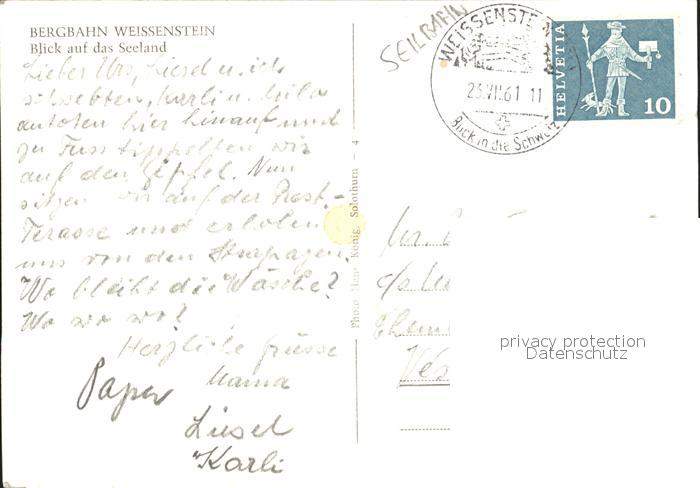 BERGBAHN WEISSENSTEIN
Blick auf das Seeland
Lieber Urs, Liesel u. ich
schwebten, Karli u. Mila
autoten hier hinauf und
zu Fuss tippelten wir
auf den Gipfel. Nun
sitzen wir auf der Rest.-
Terasse und erholen
uns von den Strapazen.
Wo bleibt die Wäsche?
Wo wo wo?
Herzliche Grüsse
Mama
Papa
Liesel
Karli
Photo Hans König, Solothurn - 4
SEILBAHN
WEISSENSTEIN
23.VII.61 11
Blick in die Schweiz
HELVETIA
10
c/o
privacy protection
Datenschutz